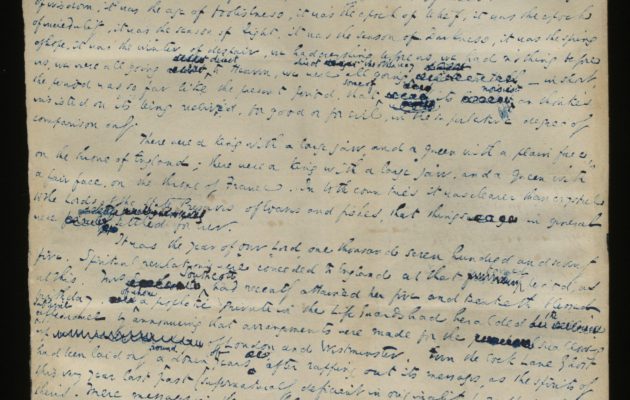 of wisdom, it was the age of foolishness, it was the epoch of belief, it was the epoch
of incredulity, it was the season of Light, it was the season of Darkness, it was the spring
of hope, it was the winter of despair, we had everything before us, we had nothing before
us, we were all going direct to Heaven, we were all going – in short
the period was so far like the present period, that some of its noisiest authorities
insisted on its being received, for good or for evil, in the superlative degree of
comparison only.
There were a king with a large jaw, and a queen with a plain face,
on the throne of England; there were a king with a large jaw, and a queen with
a fair face, on the throne of France. In both countries it was clearer than crystal to
the Lords of the State Preserves of loaves and fishes, that things in general
were settled for ever.
It was the year of our Lord, one thousand seven hundred and seventy
five. Spiritual revelations were conceded to England at that period, as
at this. Mrs Southcott had recently attained her five and twentieth blessed
birthday, of whom a prophetic private in the Life Guards had heralded the sublime
appearance by announcing that arrangements were made for the swallowing up
of London and Westminster. Even the Cock Lane Ghost
had been laid only a round dozen of years, after rapping out its messages, as the spirits of
this very year last past (supernaturally deficient in originality)
theirs. Mere messages in the